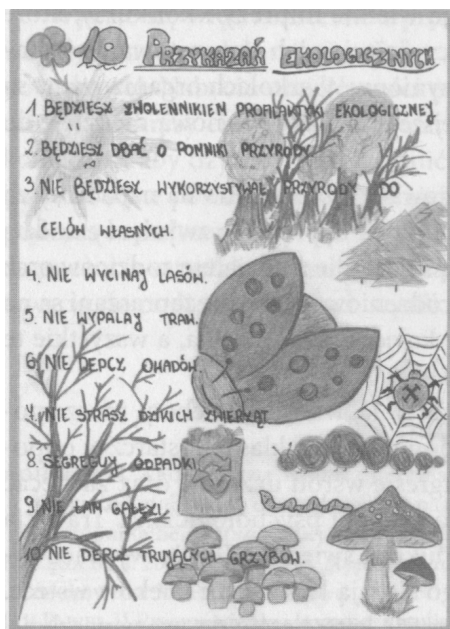 10 PRZYKAZAŃ EKOLOGICZNYCH
1. BĘDZIESZ ZWOLENNIKIEM PROFILAKTYKI EKOLOGICZNEJ
2. BĘDZIESZ DBAĆ O POMNIKI PRZYRODY.
3. NIE BĘDZIESZ WYKORZYSTYWAŁ PRZYRODY DO
CELÓW WŁASNYCH.
4. NIE WYCINAJ LASÓW.
5. NIE WYPALAJ TRAW.
6. NIE DEPCZ OWADÓW.
7. NIE STRASZ DZIKICH ZWIERZĄT
8. SEGREGUJ ODPADKI.
9. NIE ŁAM GAŁĘZI.
10. NIE DEPCZ TRUJĄCYCH GRZYBÓW.